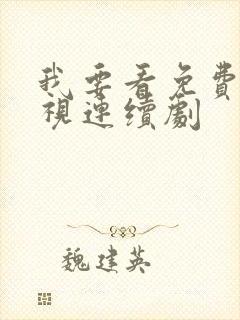 我要看免費
視連續劇
魏建英